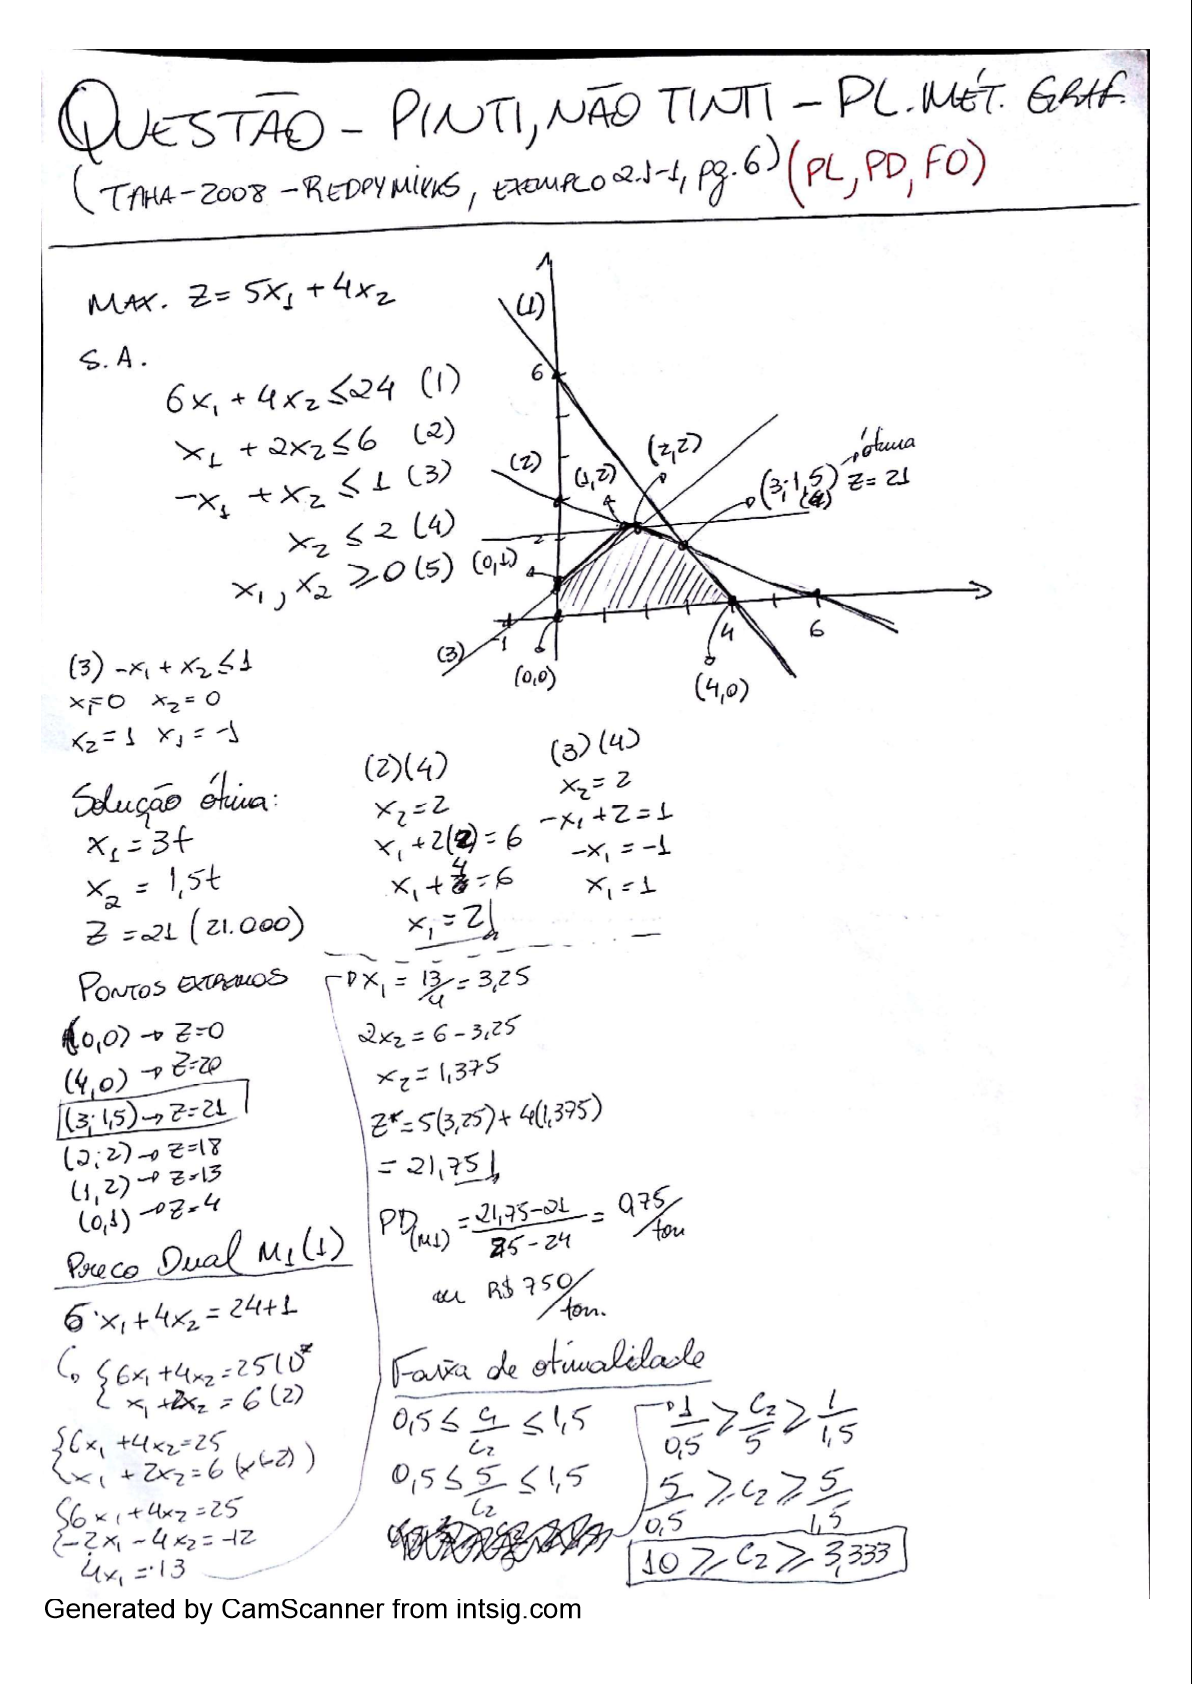 QUESTÃO - PINTI, NÃO TINTI - PL. MÉT. GRAF.
(TAHA-2008 - REDPYMIKKS, EXEMPLO 2.1-1, pg. 6) (PL, PD, FO)
MAX. Z = 5x₁ + 4x₂
S.A.
6x₁ + 4x₂ ≤ 24 (1)
x₁ + 2x₂ ≤ 6 (2)
-x₁ + x₂ ≤ 1 (3)
x₂ ≤ 2 (4)
x₁, x₂ ≥ 0 (5)
(1)
6
(2)
(1,2)
(2,2)
(3; 1,5)
ótima
Z = 21
(4)
2
(0,1)
-1
(3)
(0,0)
4
(4,0)
6
(3) -x₁ + x₂ ≤ 1
x₁=0 x₂=0
x₂=1 x₁=-1
Solução ótima:
x₁ = 3t
x₂ = 1,5t
Z = 21 (21.000)
(2)(4)
x₂ = 2
x₁ + 2(2) = 6
x₁ + 4 = 6
x₁ = 2
(3)(4)
x₂ = 2
-x₁ + 2 = 1
-x₁ = -1
x₁ = 1
PONTOS EXTREMOS
(0,0) → Z=0
(4,0) → Z=20
(3; 1,5) → Z=21
(2; 2) → Z=18
(1,2) → Z=13
(0,1) → Z=4
Preço Dual M1 (1)
6x₁ + 4x₂ = 24+1
{6x₁ + 4x₂ = 25 (1)
{x₁ + 2x₂ = 6 (2)
{6x₁ + 4x₂ = 25
{x₁ + 2x₂ = 6 (x(-2))
{6x₁ + 4x₂ = 25
{-2x₁ - 4x₂ = -12
4x₁ = 13
x₁ = 13/4 = 3,25
2x₂ = 6 - 3,25
x₂ = 1,375
Z* = 5(3,25) + 4(1,375)
= 21,75
PD(M1) = (21,75-21)/(25-24) = 0,75/ton
ou R$ 750/ton.
Faixa de otimalidade
0,5 ≤ c₁/c₂ ≤ 1,5
0,5 ≤ 5/c₂ ≤ 1,5
1/0,5 ≥ c₂/5 ≥ 1/1,5
5/0,5 ≥ c₂ ≥ 5/1,5
10 ≥ c₂ ≥ 3,333
Generated by CamScanner from intsig.com